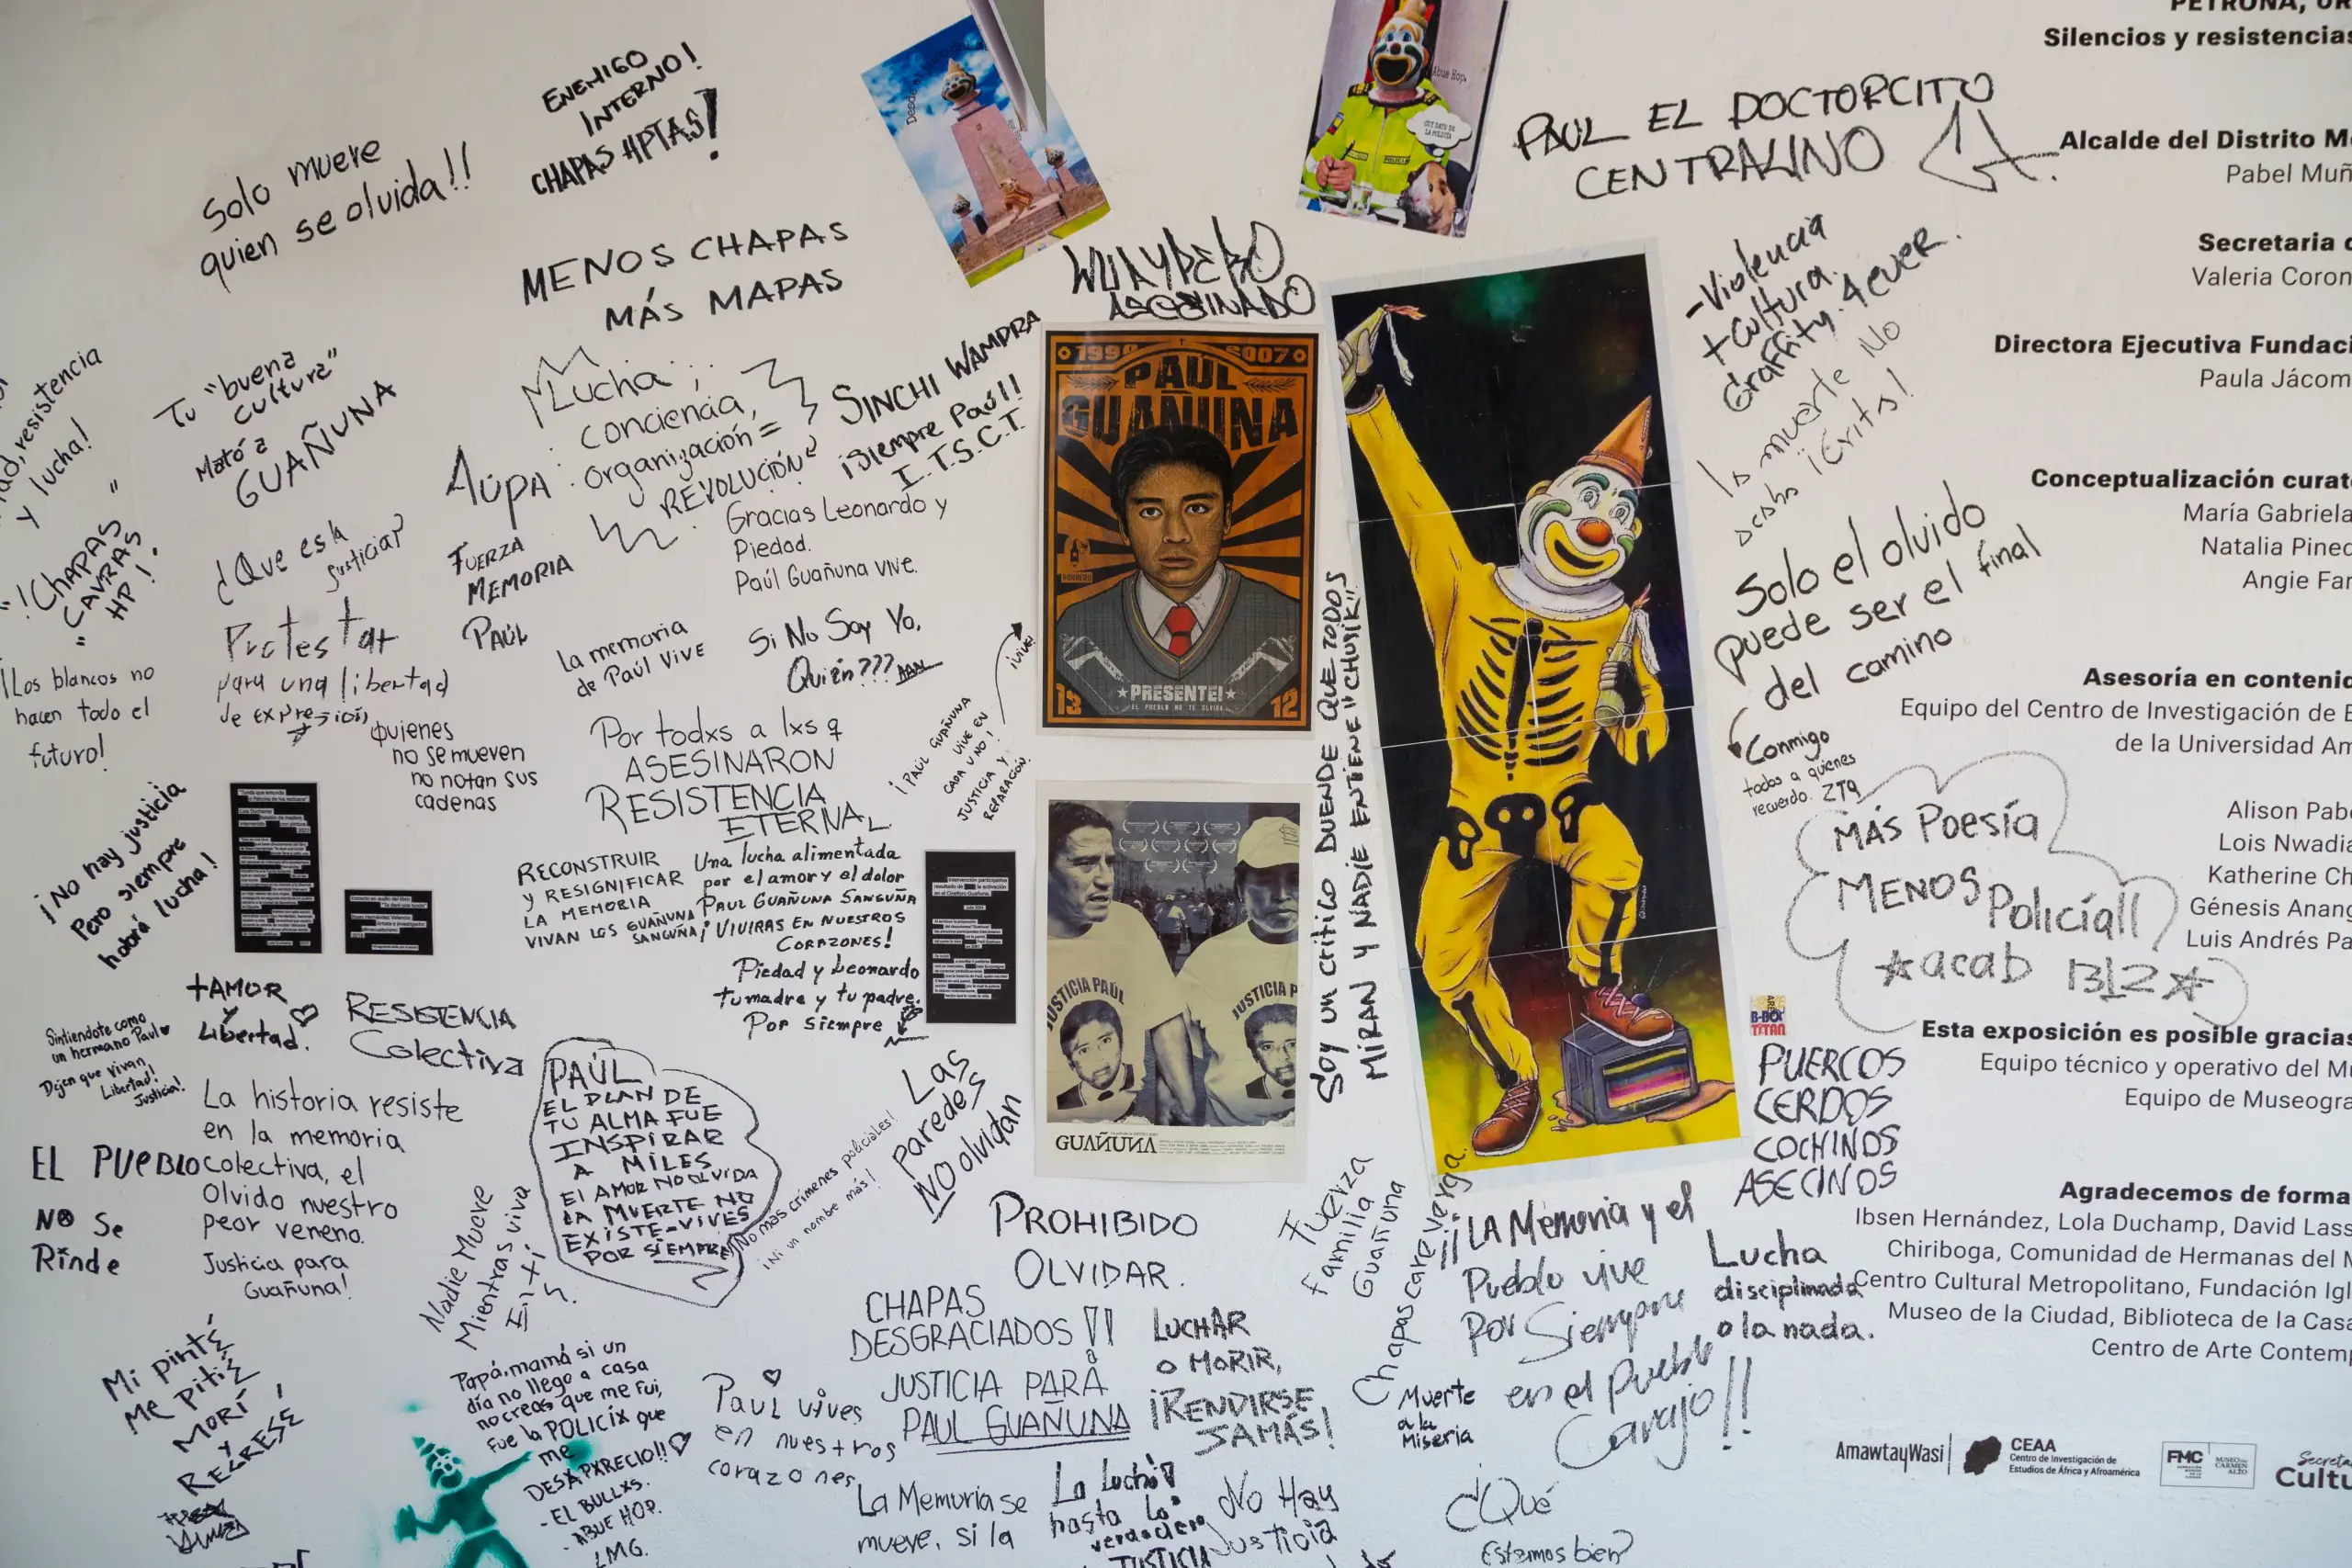 Solo muere
quien se olvida!!
ENEMIGO
INTERNO!
CHAPAS HPTAS!
MENOS CHAPAS
MÁS MAPAS
Abue Hop.
PAUL EL DOCTORCITO
CENTRALINO
Silencios y resistencias
Alcalde del Distrito
Pabel Muñ
Secretaria
Valeria Coron
Directora Ejecutiva Fundaci
Paula Jácom
Conceptualización curat
María Gabriela
Natalia Pined
Angie Far
Asesoría en contenid
Equipo del Centro de Investigación de
de la Universidad Am
Alison Pab
Lois Nwadia
Katherine Ch
Génesis Anang
Luis Andrés Pa
Esta exposición es posible gracias
Equipo técnico y operativo del Mu
Equipo de Museogra
Agradecemos de forma
Ibsen Hernández, Lola Duchamp, David Lass
Chiriboga, Comunidad de Hermanas del M
Centro Cultural Metropolitano, Fundación Igl
Museo de la Ciudad, Biblioteca de la Casa
Centro de Arte Contemp
AmawtayWasi
CEAA
Centro de Investigación de
Estudios de África y Afroamérica
FMC
MUSEO DEL
CARMEN
ALTO
Secreta
Cultu
resistencia
y lucha!
Tu "buena
cultura"
Mató a
GUAÑUNA
"¡CHAPAS"
"CAVRAS
HP!
¿Que es la
justicia?
Protestar
para una libertad
de expresión
¡Los blancos no
hacen todo el
futuro!
quienes
no se mueven
no notan sus
cadenas
Lucha;
conciencia,
organización =
REVOLUCIÓN
AÚPA
FUERZA
MEMORIA
PAÚL
SINCHI WAMBRA
¡Siempre Paúl!!
I.T.S.C.T.
Gracias Leonardo y
Piedad.
Paúl Guañuna vive.
La memoria
de Paúl Vive
Si No Soy Yo,
Quién???
Por todxs a lxs q
ASESINARON
RESISTENCIA
ETERNAL
¡PAÚL GUAÑUNA
VIVE EN
CADA UNO!
JUSTICIA Y
REPARACIÓN.
¡VIVE!
WUAYPERO
ASESINADO
1990 2007
PAUL
GUAÑUNA
PRESENTE!
EL PUEBLO NO TE OLVIDA
13 12
JUSTICIA PAÚL
JUSTICIA P
GUAÑUNA
SOY UN CRITICO DUENDE QUE TODOS
MIRAN Y NADIE ENTIENE "CHUSIK".
-Violencia
+ Cultura.
Graffity. 4ever.
la muerte No
acaba ¡Érits!
Solo el olvido
puede ser el final
del camino
Conmigo
todos a quienes
recuerdo. ZTA
MÁS Poesía
MENOS Policíall
☆acab 1312☆
B-BOY
TITAN
PUERCOS
CERDOS
COCHINOS
ASECINOS
¡No hay justicia
Pero siempre
habrá lucha!
RECONSTRUIR
Y RESIGNIFICAR
LA MEMORIA
VIVAN LOS GUAÑUNA
SANGUÑA
Una lucha alimentada
por el amor y el dolor
PAUL GUAÑUNA SANGUÑA
¡VIVIRAS EN NUESTROS
CORAZONES!
Piedad y Leonardo
tu madre y tu padre.
Por siempre
+AMOR
y
Libertad.
RESISTENCIA
Colectiva
Sintiendote como
un hermano Paul
Dejen que vivan
Libertad!
Justicia!
La historia resiste
en la memoria
colectiva, el
Olvido nuestro
peor veneno.
Justicia para
Guañuna!
EL PUEBLO
NO Se
Rinde
PAÚL
EL PLAN DE
TU ALMA FUE
INSPIRAR
A MILES
El AMOR NO OLVIDA
LA MUERTE NO
EXISTE-VIVES
POR SIEMPRE
Nadie Muere
Mientras viva
En ti
No más crímenes policiales!
¡Ni un nombre más!
Las
paredes
NO olvidan
PROHIBIDO
OLVIDAR.
Fuerza
Familia
Guañuna
Chapas care verga.
¡¡LA Memoria y el
Pueblo vive
Por Siempre
en el pueblo
Carajo!!
Lucha
disciplinada
o la nada.
Mi pinté
Me pité
MORÍ
Y
REGRESE
Papá, mamá si un
día no llego a casa
no creas que me fui,
fue la POLICÍX que
me
DESAPARECIO!!
-EL BULLXS.
-ABUE HOP.
LMG.
Paúl vives
en nuestros
corazones.
CHAPAS
DESGRACIADOS!!
JUSTICIA PARA
PAUL GUAÑUNA
LUCHAR
O MORIR,
¡RENDIRSE
JAMÁS!
Muerte
a la
Miseria
La Memoria se
mueve, si la
La lucha
hasta la
verdadera
JUSTICIA
No Hay
Justicia
¿Qué
Estamos bien?